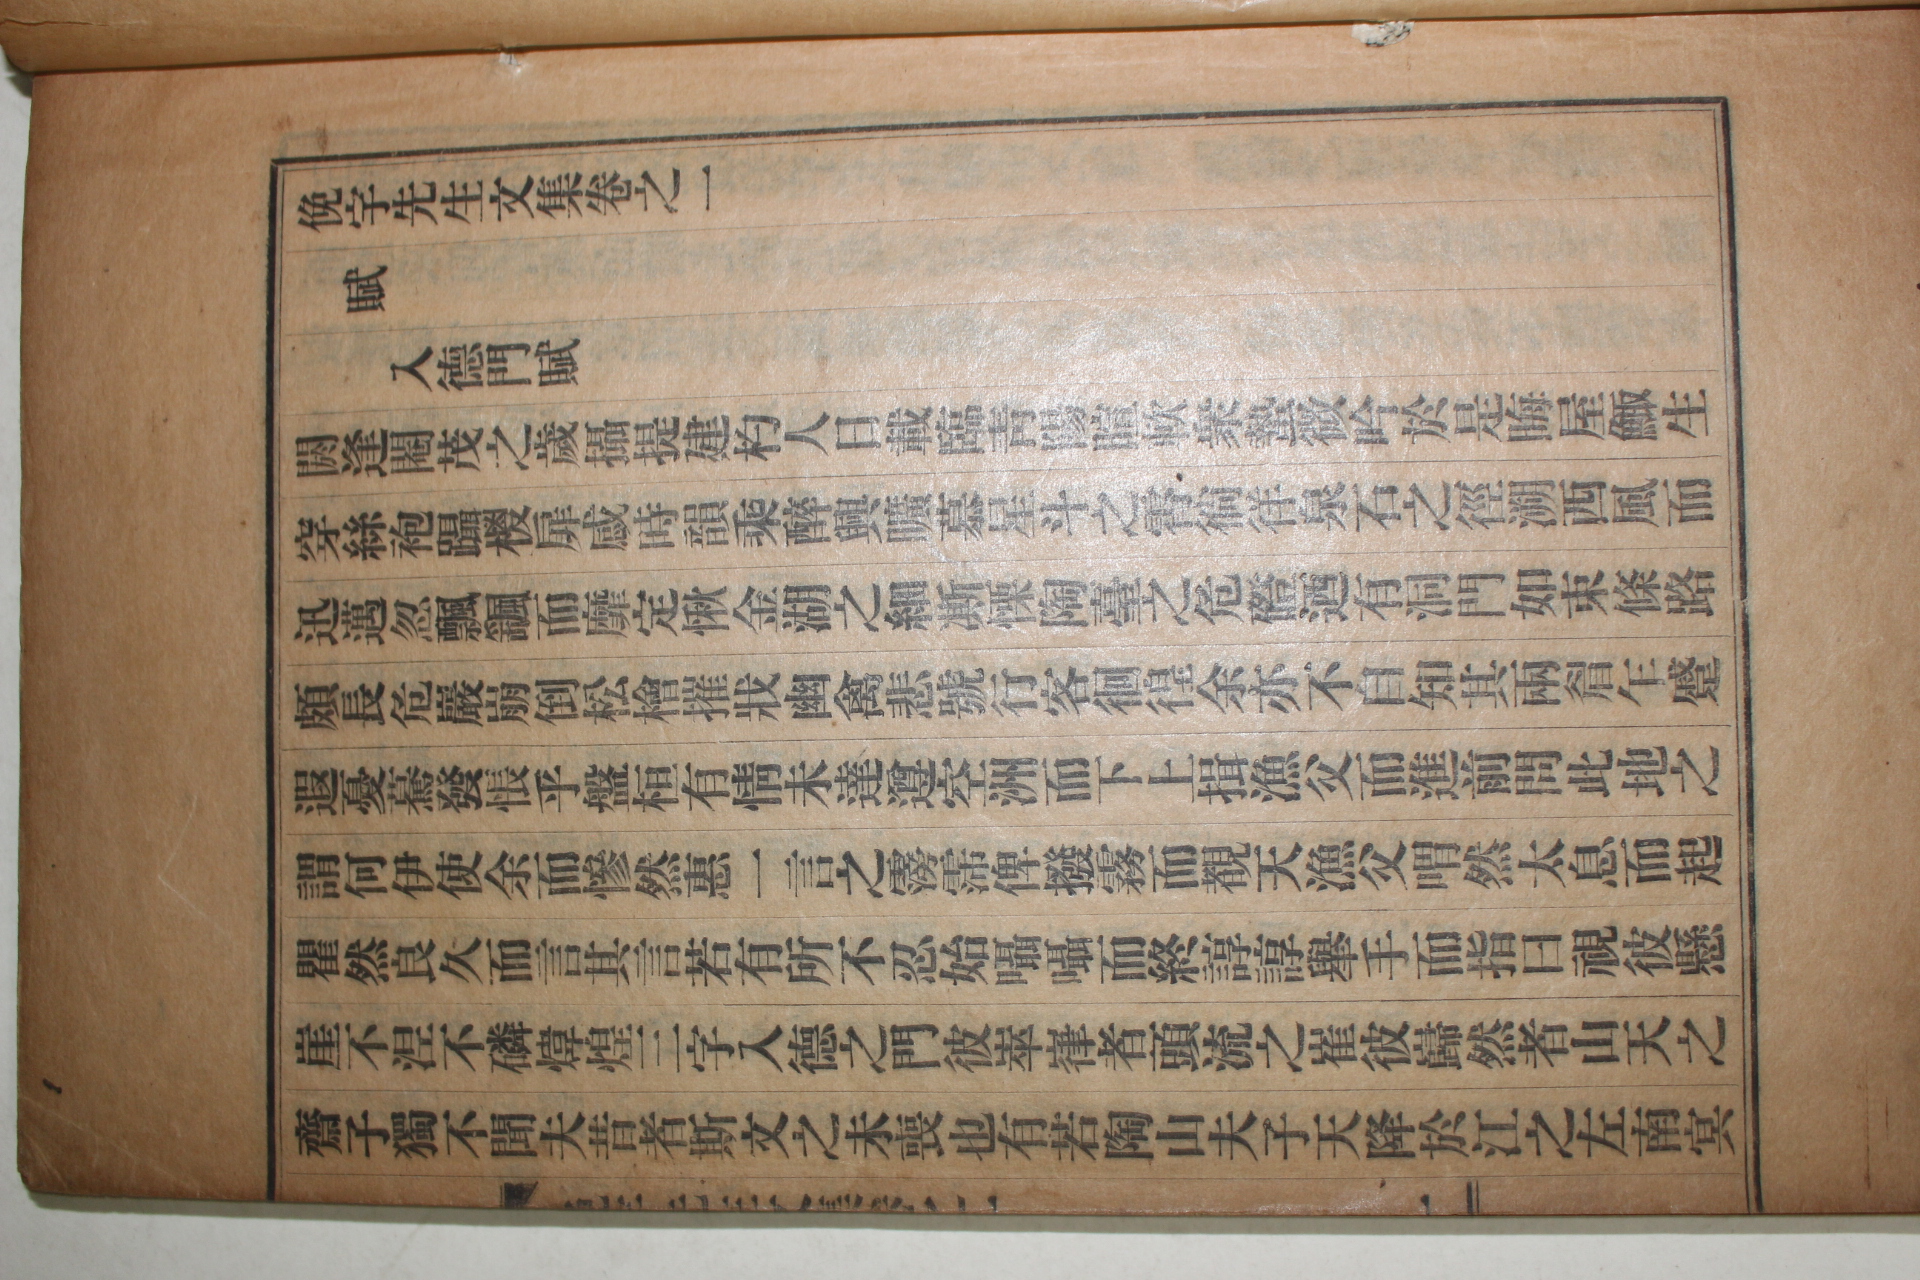 俛宇先生文集卷之一
賦
入德門賦
閼逢閹茂之歲攝提建杓人日載臨靑陽暄欷紫蓺微吟於是晦屋鯫生
穿絲袍躡椶屝感時韻乘醉興曠慕星斗之鄕徜徉泉石之徑溯西風而
迅邁忽飄飄而靡定愀金湖之細澌慄陶臺之危磴迺有洞門如束條路
頗長危巖崩倒松檜摧戕幽禽悲號行客徊徨余亦不自知其兩眉乍蹙
遐憂驀發悵乎盤桓有情未達遵空洲而下上揖漁父而進前問此地之
謂何伊使余而慘然惠一言之霶霈俾撥霧而覩天漁父喟然太息而起
瞿然良久而言其言若有所不忍始囁囁而終諄諄擧手而指曰視彼懸
崖不涅不磷煒煌三字入德之門彼崒嵂者頭流之崔彼巋然者山天之
齋子獨不聞夫昔者斯文之未喪也有若陶山夫子天降於江之左南冥